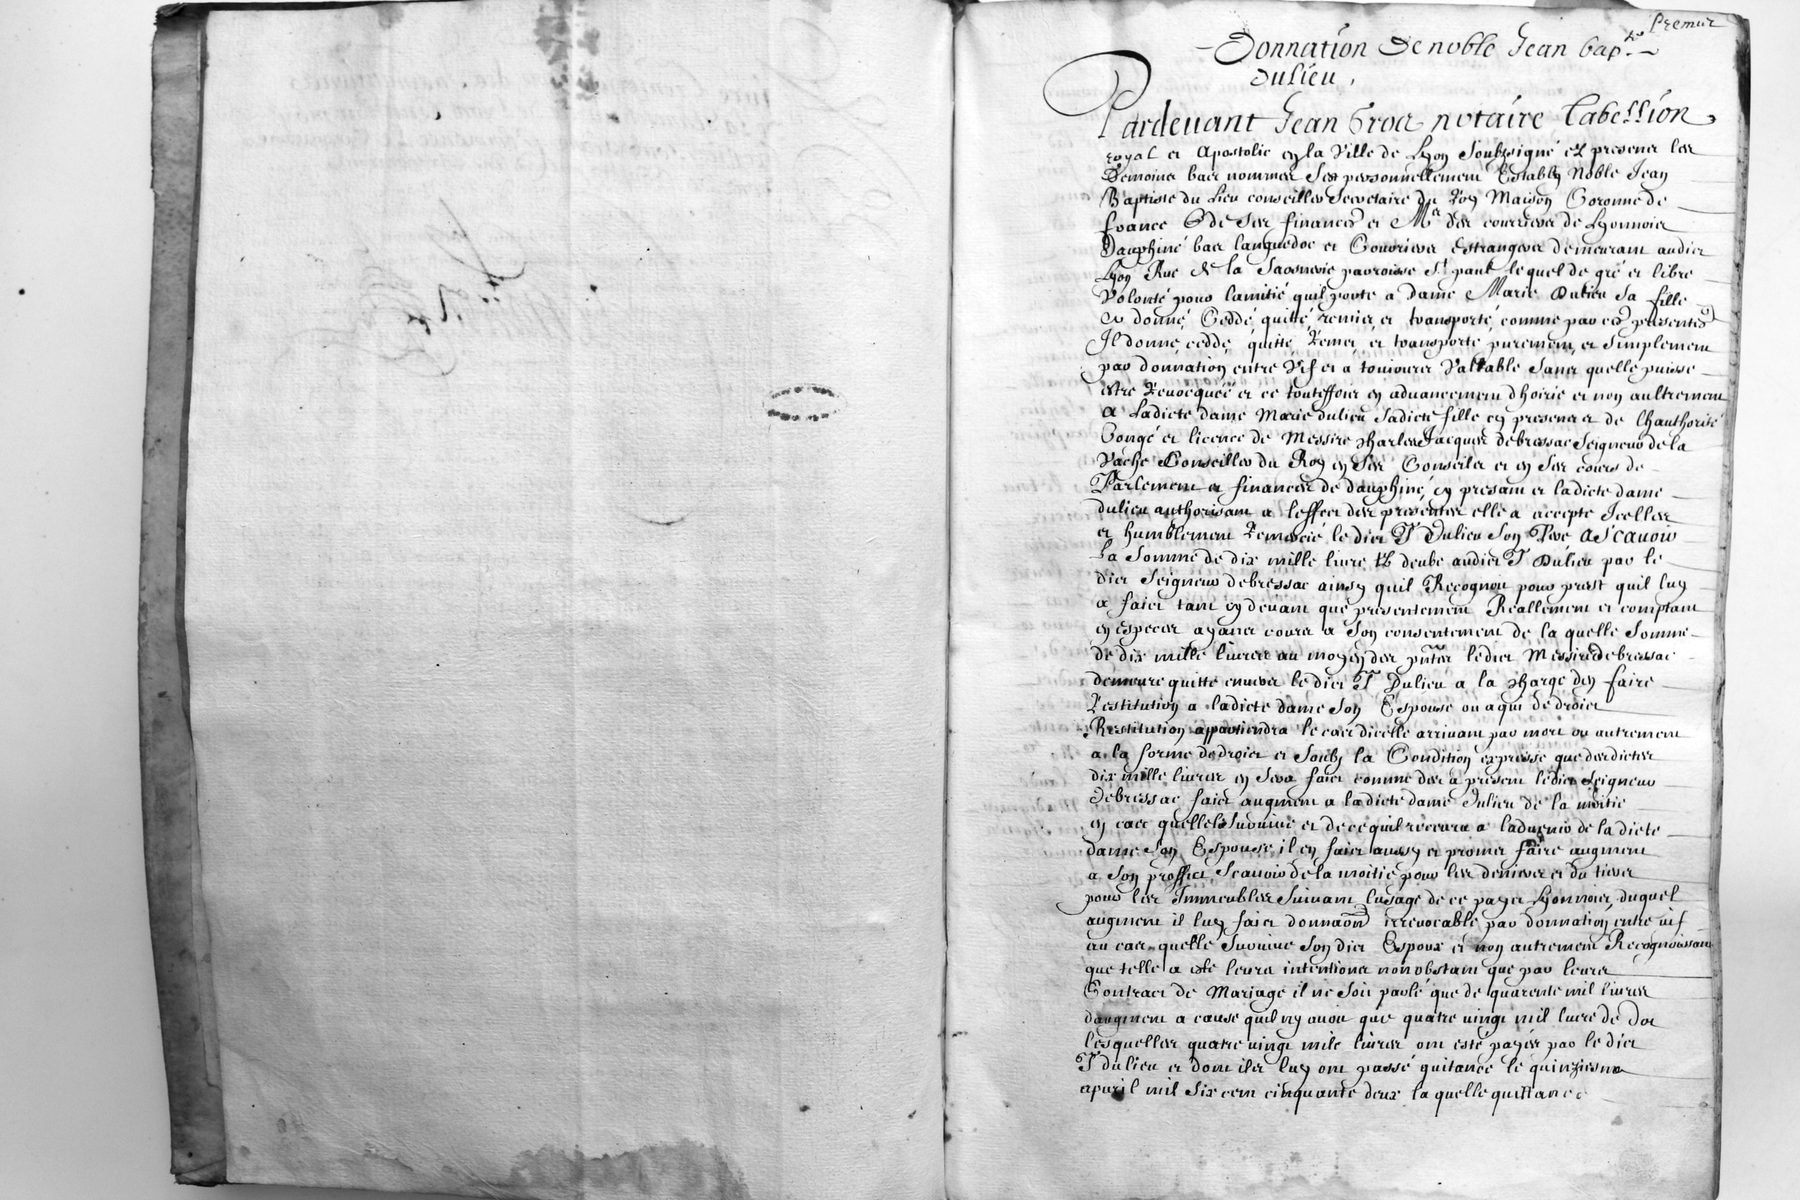 Premier
Donnation de noble Jean bap.te
dulieu.
Pardevant Jean Grod notaire Tabellion
royal et Apostolic en la Ville de Lyon soubzsigné et presenet les
tesmoins bas nommes sest personnellement Estably Noble Jean
Baptiste du Lieu conseiller Secretaire du Roy Maison Coronne de
france & de ses finances et M.e des courriers de Lyonnois
Dauphiné bas languedoc et Couriers Estrangers demeurant audict
Lyon Rue de la Saonnerie parroisse St paul lequel de gré et libre
Volonté pour lamitié quil porte a dame Marie Dulieu sa fille
a donné Ceddé quitté remis et transporté comme par ces presentes
Il donne cedde quitte Remet et transporte purement et simplement
par donnation entre Vif et a tousiours Vallable sans quelle puisse
estre Revocquée et ce touteffois en advancement dhoirie et non aultrement
A Ladicte dame Marie dulieu sadicte fille cy presente et de lhauthorité
Congé et licence de Messire charles Jacques debressac Seigneur de la
Vache Conseiller du Roy en ses Conseils et en ses cours de
Parlement et finances de dauphiné cy present et ladicte dame
dulieu authorisant a leffect des presentes elle a accepte Icelles
et humblement Remercié le dict Sr Dulieu son Pere Ascavoir
La Somme de dix mille livres deube audict Sr Dulieu par le
dict Seigneur debressac ainsy quil Recognoit pour prest quil luy
a faict tant cy devant que presentement Reallement et comptant
en especes ayants cours a son consentement de la quelle Somme
de dix mille livres au moyen des pntes ledict Messire debressac
demeure quitte envers le dict Sr Dulieu a la charge den faire
Restitution a ladicte dame son Espouse ou a qui de droict
Restitution appartiendra le cas dicelle arrivant par mort ou autrement
a la forme de droict et soubz la Condition expresse que desdictes
dix mille livres en sera faict comme des a present ledict Seigneur
debressac faict augment a ladicte dame Dulieu de la moitie
en cas quelle le survive et de ce quil recevra a ladvenir de la dicte
dame son Espouse il en faict aussy et promet faire augment
a son proffict Scavoir de la moitié pour les deniers et du tiers
pour les Immeubles suivant lusage de ce pays Lyonnois duquel
augment il luy faict donnaon irrevocable par donnation entre vif
au cas quelle survive son dict Espoux et non autrement Recognoissant
que telle a esté leurs intentions nonobstant que par leurs
Contract de Mariage il ne soit parlé que de quarente mil livres
daugment a cause quil ny avoit que quatre vingt mil livre de dot
lesquelles quatre vingt mile livres ont esté payés par le dict
Sr dulieu et dont iles luy ont passé quitance le quinziesme
apvril mil six cent cinquante deux la quelle quittance